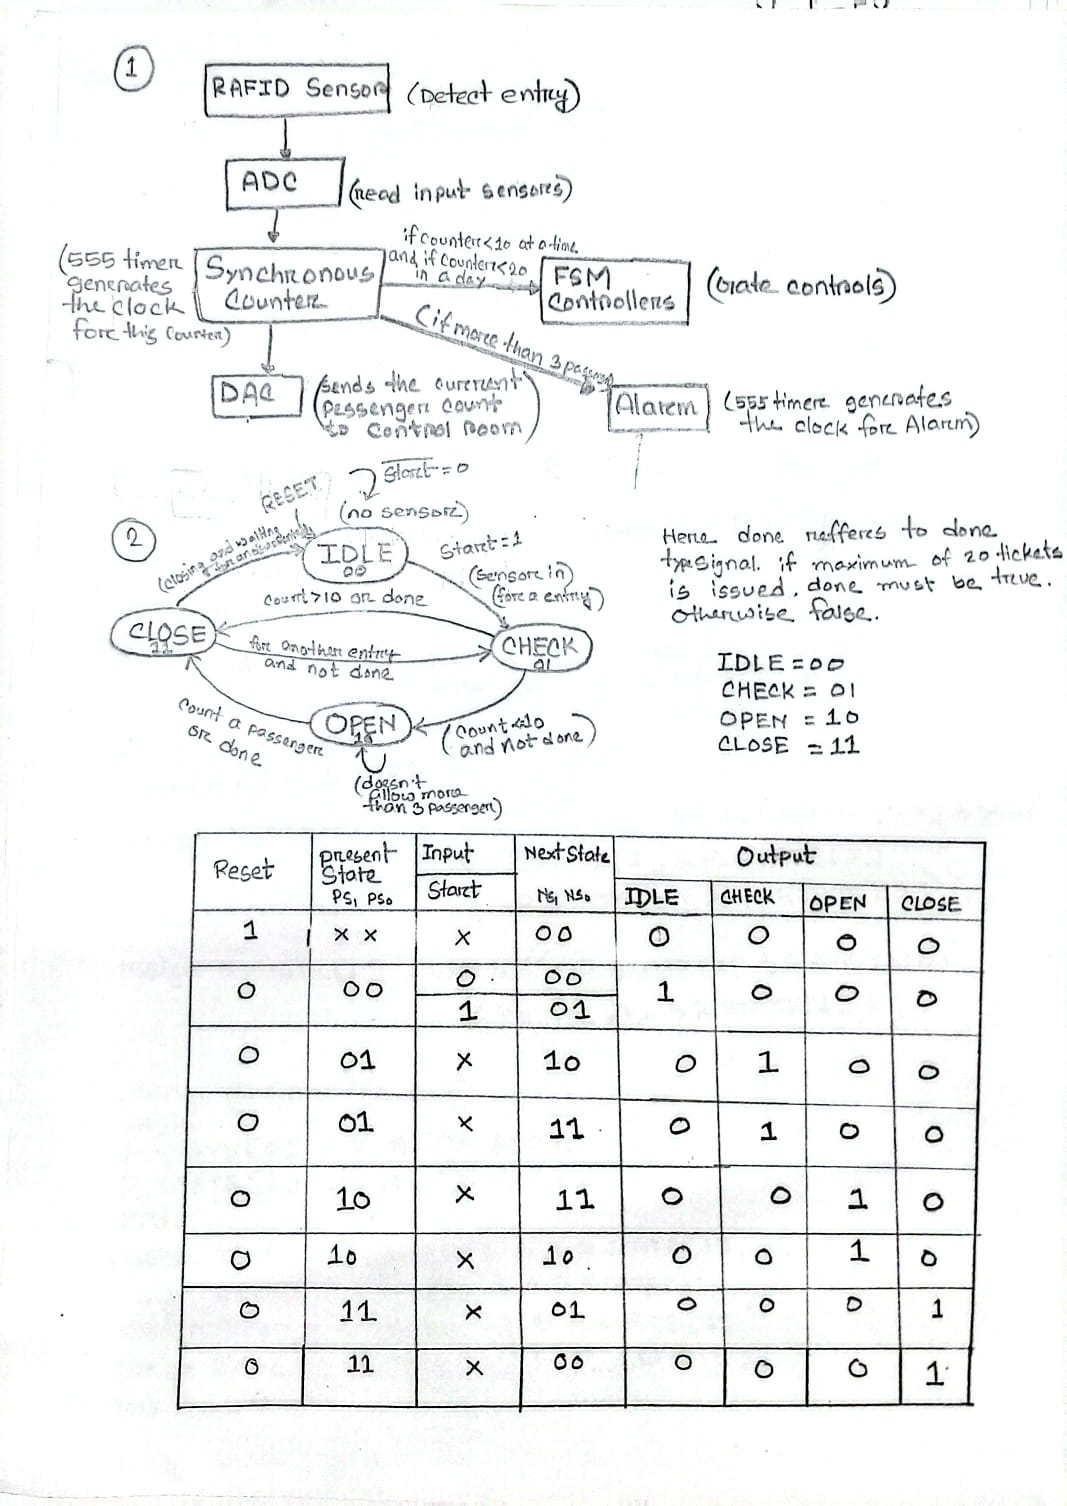 1
RAFID Sensor (Detect entry)
ADC (read input sensores)
(555 timer
generates
the clock
fore this Counter)
Synchronous
Counter
if counter<10 at a time
and if counter<20
in a day
FSM
Controllers
(Grate controls)
(if more than 3 passenger)
DAC
(sends the current
pessenger count
to Control Room)
Alarem
(555 timere generates
the clock fore Alarm)
2
RESET
Start=0
(no sensore)
IDLE
00
Start=1
(sensore in)
(fore a entry)
(closing and waiting
for another entry)
Count>10 or done
CLOSE
11
for another entry
and not done
CHECK
01
Count a passenger
or done
OPEN
10
(Count<10
and not done)
(doesn't
allow more
than 3 passenger)
Here done refferes to done
type signal. if maximum of 20 tickets
is issued, done must be treue.
otherwise false.
IDLE = 00
CHECK = 01
OPEN = 10
CLOSE = 11
Reset present State PS1 PS0 Input Start Next State NS1 NS0 Output IDLE CHECK OPEN CLOSE
1 x x x 00 0 0 0 0
0 00 0 00 1 0 0 0
1 01
0 01 x 10 0 1 0 0
0 01 x 11 0 1 0 0
0 10 x 11 0 0 1 0
0 10 x 10 0 0 1 0
0 11 x 01 0 0 0 1
0 11 x 00 0 0 0 1